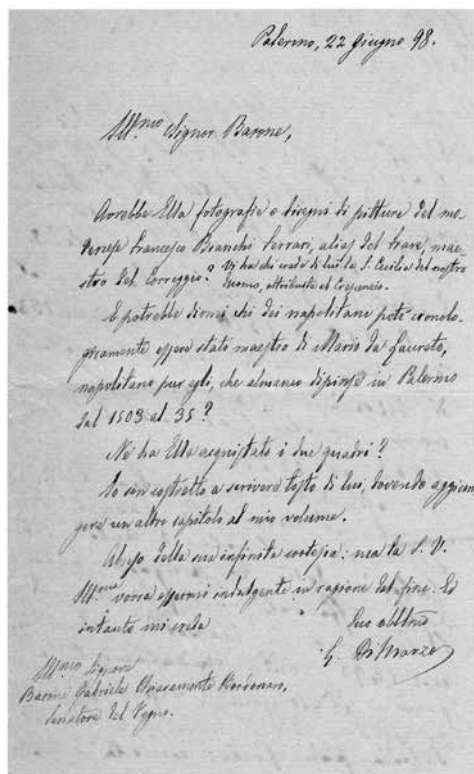 Palermo, 22 Giugno 98.
Ill.mo Signor Barone,
Avrebbe Ella fotografie o disegni di pitture del mo-
denese Francesco Bianchi Ferrari, alias del Frare, mae-
stro del Correggio? Vi ha chi crede di lui la S. Cecilia del nostro
Duomo, attribuita al Crescenzio.
E potrebbe dirmi chi dei napolitani poté cronolo-
gicamente essere stato maestro di Mario da Laureto,
napolitano pur egli, che almanco dipinse in Palermo
dal 1503 al 35?
Ne ha Ella acquistato i due quadri?
Io son costretto a scrivere tosto di lui, dovendo aggiun
gere un altro capitolo al mio volume.
Abuso della sua infinita cortesia: ma la S. V.
Ill.ma vorrà essermi indulgente in ragione del fine. Ed
intanto mi creda
Suo obbl.mo
G. Di Marzo
Ill.mo Signore
Barone Gabriele Chiaramonte Bordonaro,
Senatore del Regno.